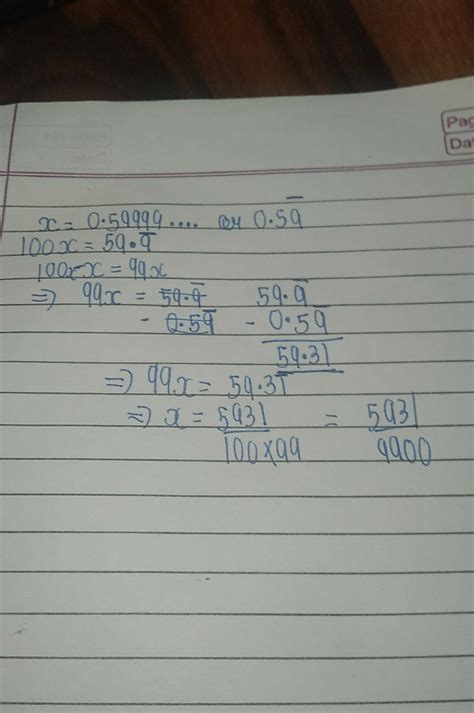 Pag
Da
x = 0.59999.... or 0.59̅
100x = 59.9̅
100x-x = 99x
⇒ 99x = 59.9̅    59.9̅
- 0.59̅    - 0.59̅
59.31
⇒ 99x = 59.31
⇒ x = 5931/100×99 = 5931/9900